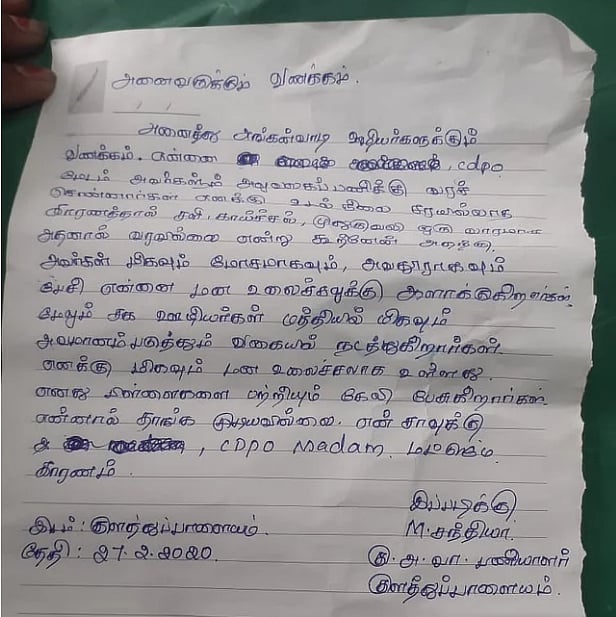 அனைவருக்கும் வணக்கம்.
அனைத்து அங்கன்வாடி ஊழியர்களுக்கும்
வணக்கம். என்னை , cdpo
மேடம் அவர்களும் அலுவலகப்பணிக்கு வரச்
சொன்னார்கள் எனக்கு உடல் நிலை சரியில்லாத
காரணத்தால் சளி, காய்ச்சல், முதுகுவலி ஒரு வாரமாக
அதனால் வரவில்லை என்று கூறினேன் அதற்கு
அவர்கள் மிகவும் மோசமாகவும், அவதூராகவும்
பேசி என்னை மன உலைச்சலுக்கு ஆளாக்குகிறார்கள்.
மேலும் சக ஊழியர்கள் மத்தியில் மிகவும்
அவமானப்படுத்தும் வகையில் நடத்துகிறார்கள்.
எனக்கு மிகவும் மன உலைச்சலாக உள்ளது.
எனது பிள்ளைகளை பற்றியும் கேலி பேசுகிறார்கள்.
என்னால் தாங்க முடியவில்லை. என் சாவுக்கு
, CDPO Madam. மட்டுமே
காரணம்.
இப்படிக்கு
இடம் : குளத்துப்பாளையம். M. சந்தியா.
தேதி : 27.2.2020. கு. அ. வா. பணியாளர்
குளத்துப்பாளையம்.